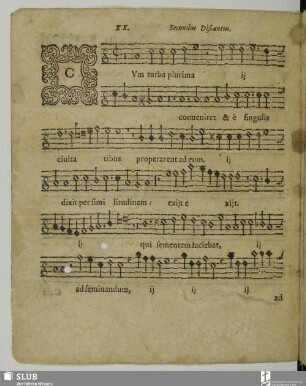 XX. Secundus Discantus.
C
Vm turba plurima ij
conveniret & è singulis
civita tibus properarent ad eum. ij
dixit per simi litudinem: exijt e xijt.
ij qui sementem faciebat, ij
ad seminandum, ij ij ij
ad
SLUB
Wir führen Wissen.